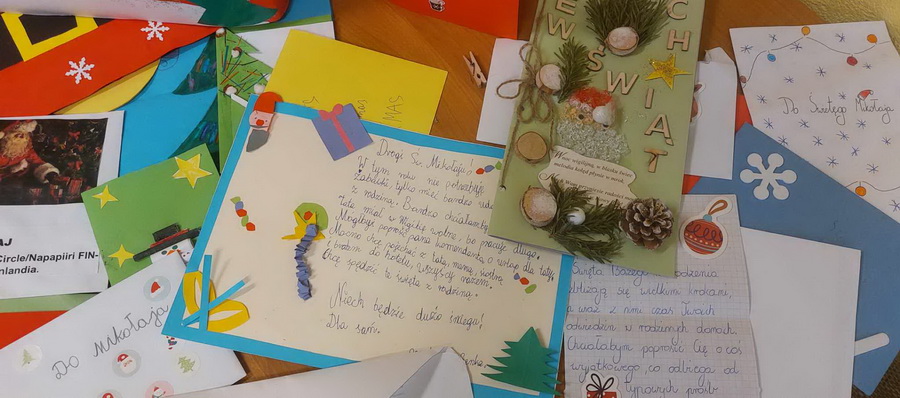 Drogi Św. Mikołaju!
W tym roku nie potrzebuję
zabawki, tylko mieć bardzo
z rodziną. Bardzo chciałabym
tata miał w Wigilię wolne, bo pracuje długo.
Mógłbyś poprosić pana komendanta o urlop dla taty.
Mocno chcę pojechać z tatą, mamą, siostrą
i bratem do hotelu, wszyscy razem.
Chcę spędzić te święta z rodziną.
Niech będzie dużo śniegu!
Dla sam.
EW
ŚWIĄT
CH
MAS
Do Świętego Mikołaja
AJ
Circle/Napapiiri FIN-
nlandia.
Do Mikołaja
Święta Bożego
zbliżają się wielkimi krokami,
a wraz z nimi czas Twoich
odwiedzin w rodzinnych domach.
Chciałabym poprosić Cię o coś
wyjątkowego, co odbiega od
typowych próśb